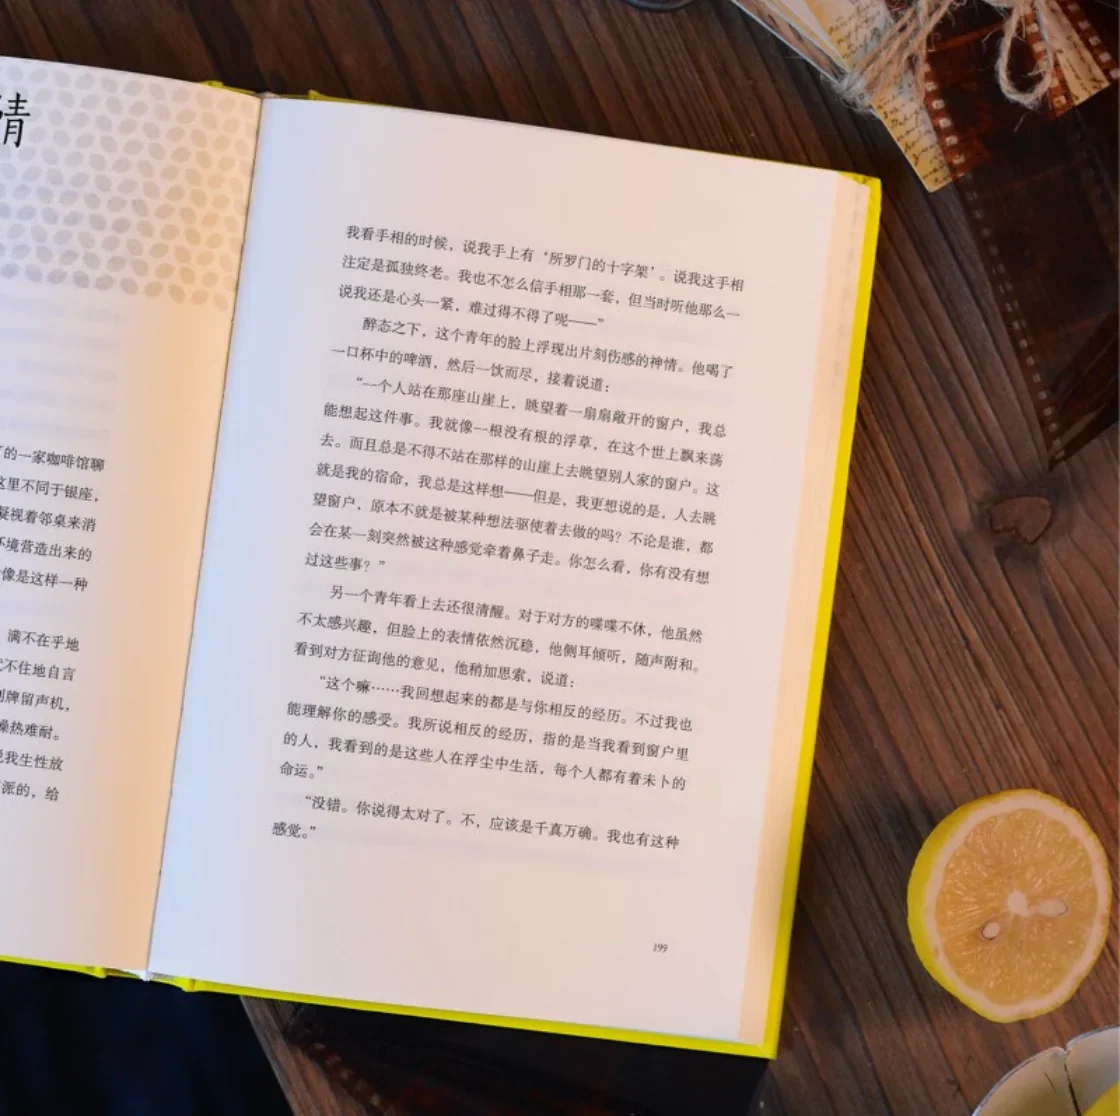 情
的一家咖啡馆聊
这里不同于银座，
凝视着邻桌来消
环境营造出来的
像是这样一种
满不在乎地
不住地自言
牌留声机，
燥热难耐。
说我生性放
派的，给
我看手相的时候，说我手上有‘所罗门的十字架’。说我这手相
注定是孤独终老。我也不怎么信手相那一套，但当时听他那么一
说我还是心头一紧，难过得不得了呢——”
醉态之下，这个青年的脸上浮现出片刻伤感的神情。他喝了
一口杯中的啤酒，然后一饮而尽，接着说道：
“一个人站在那座山崖上，眺望着一扇扇敞开的窗户，我总
能想起这件事。我就像一根没有根的浮草，在这个世上飘来荡
去。而且总是不得不站在那样的山崖上去眺望别人家的窗户。这
就是我的宿命，我总是这样想——但是，我更想说的是，人去眺
望窗户，原本不就是被某种想法驱使着去做的吗？不论是谁，都
会在某一刻突然被这种感觉牵着鼻子走。你怎么看，你有没有想
过这些事？”
另一个青年看上去还很清醒。对于对方的喋喋不休，他虽然
不太感兴趣，但脸上的表情依然沉稳，他侧耳倾听，随声附和。
看到对方征询他的意见，他稍加思索，说道：
“这个嘛……我回想起来的都是与你相反的经历。不过我也
能理解你的感受。我所说相反的经历，指的是当我看到窗户里
的人，我看到的是这些人在浮尘中生活，每个人都有着未卜的
命运。”
“没错。你说得太对了。不，应该是千真万确。我也有这种
感觉。”
199